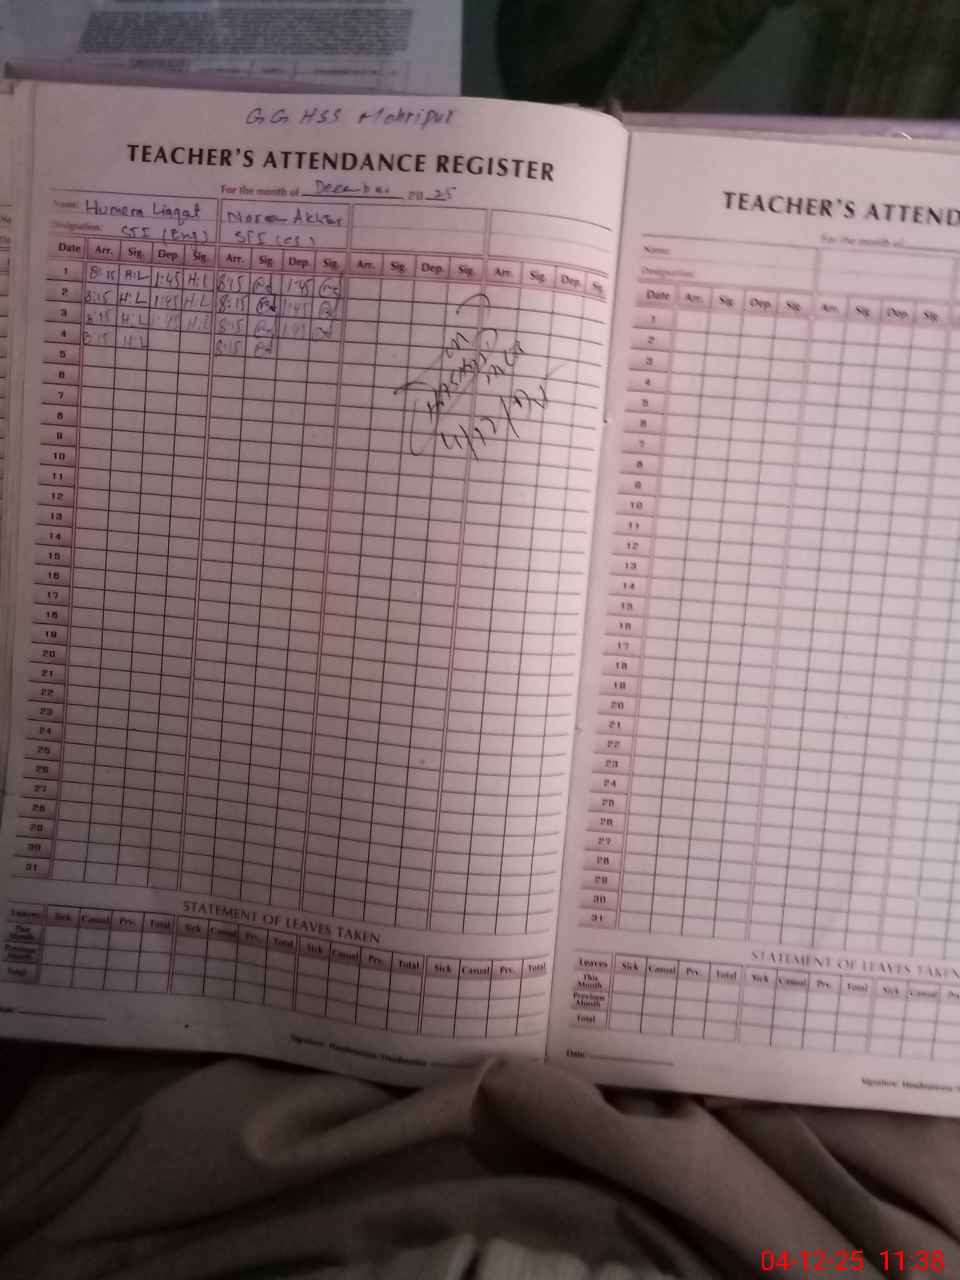 GG HSS Mohripur
TEACHER'S ATTENDANCE REGISTER
For the month of December 2025
Name: Humera Liaqat Noreen Akhtar
Designation: STI (Eng) STI (CS)
Date Arr. Sig. Dep. Sig. Arr. Sig. Dep. Sig. Arr. Sig. Dep. Sig. Arr. Sig. Dep. Sig.
1 8:15 H:L 1:45 H:L 8:15 1:45
2 8:15 H:L 1:45 H:L 8:15 1:45
3 8:15 H:L 1:45 H:L 8:15 1:45
4 8:15 H:L 8:15
5
6
7
8
9
10
11
12
13
14
15
16
17
18
19
20
21
22
23
24
25
26
27
28
29
30
31
STATEMENT OF LEAVES TAKEN
Leaves Sick Casual Prv. Total Sick Casual Prv. Total Sick Casual Prv. Total Sick Casual Prv. Total
This Month
Previous Month
Total
Date
Signature: Headmistress / Headmaster
TEACHER'S ATTEND
For the month of
Name:
Designation:
Date Arr. Sig. Dep. Sig. Arr. Sig. Dep. Sig.
1
2
3
4
5
6
7
8
9
10
11
12
13
14
15
16
17
18
19
20
21
22
23
24
25
26
27
28
29
30
31
STATEMENT OF LEAVES TAKEN
Leaves Sick Casual Prv. Total Sick Casual Prv. Total Sick Casual
This Month
Previous Month
Total
Date
Signature: Headmistress
04-12-25 11:38